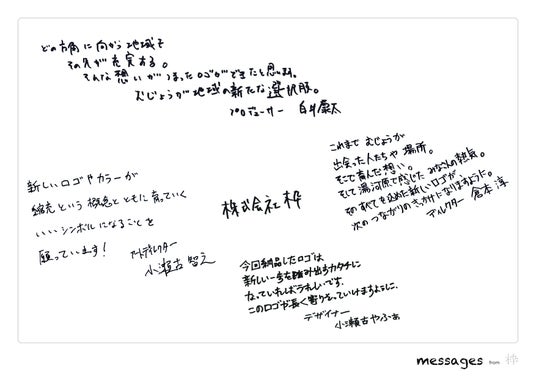 どの方角に向かう地域も
その人が充実する。
そんな想いがつまったロゴができたと思います。
むじょうが地域の新たな選択肢。
プロデューサー 白井康太
これまで むじょうが
出会った人たちや場所。
そこで育んだ想い。
そして湯河原で感じた みなさんの熱気。
そのすべてを込めた新しいロゴが、
次のつながりのきっかけになりますように。
ディレクター 倉本 淳
新しいロゴやカラーが
縮充という概念とともに育っていく
いいシンボルになることを
願っています!
アートディレクター
小瀬古 智之
株式会社 枠
今回納品したロゴは
新しい一歩を踏み出すカタチに
なっていればうれしいです。
このロゴが長く寄りそっていけますように。
デザイナー
小瀬古 やふぁ
messages from 枠